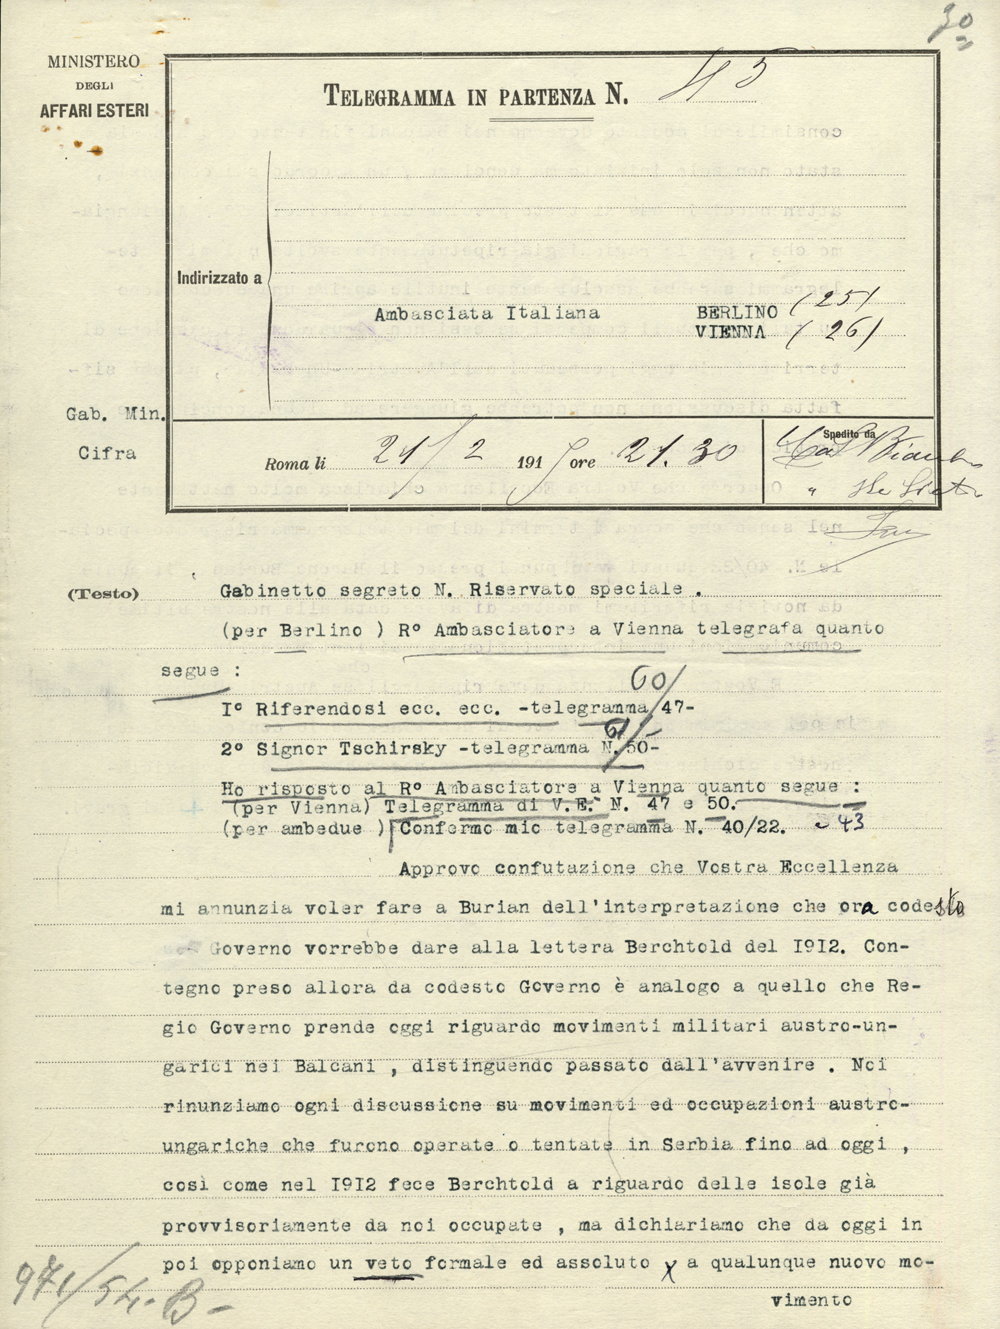 30
MINISTERO
DEGLI
AFFARI ESTERI
TELEGRAMMA IN PARTENZA N. 45
Indirizzato a
Ambasciata Italiana BERLINO (25)
VIENNA (26)
Gab. Min.
Cifra
Roma li 21/2 1915 ore 21.30
Spedito da
(Testo) Gabinetto segreto N. Riservato speciale .
(per Berlino ) Rº Ambasciatore a Vienna telegrafa quanto
segue :
60/
Iº Riferendosi ecc. ecc. -telegramma 47-
61/
2º Signor Tschirsky -telegramma N. 50-
Ho risposto al Rº Ambasciatore a Vienna quanto segue :
(per Vienna) Telegramma di V.E. N. 47 e 50.
(per ambedue ) Confermo mio telegramma N. 40/22. e 43
Approvo confutazione che Vostra Eccellenza
mi annunzia voler fare a Burian dell'interpretazione che ora codesto
Governo vorrebbe dare alla lettera Berchtold del I9I2. Con-
tegno preso allora da codesto Governo è analogo a quello che Re-
gio Governo prende oggi riguardo movimenti militari austro-un-
garici nei Balcani , distinguendo passato dall'avvenire . Noi
rinunziamo ogni discussione su movimenti ed occupazioni austro-
ungariche che furono operate o tentate in Serbia fino ad oggi ,
così come nel I9I2 fece Berchtold a riguardo delle isole già
provvisoriamente da noi occupate , ma dichiariamo che da oggi in
poi opponiamo un veto formale ed assoluto a qualunque nuovo mo-
vimento
971/54.B-